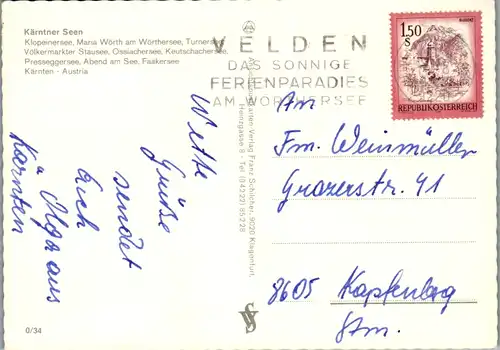 Kärntner Seen
Klopeinersee, Maria Wörth am Wörthersee, Turnersee,
Völkermarkter Stausee, Ossiachersee, Keutschachersee,
Presseggersee, Abend am See, Faakersee
Kärnten - Austria
VELDEN
DAS SONNIGE
FERIENPARADIES
AM WÖRTHERSEE
1.50
S
REPUBLIK ÖSTERREICH
Ansichtskarten Verlag Franz Schilcher, 9020 Klagenfurt,
Heinzgasse 8 - Tel. (04222) 85 2 28
Nette
Grüße
sendet
Euch
Olga aus
Kärnten
An
Fm. Weinmüller
Grazerstr. 41
8605 Kapfenberg
Stm.
0/34